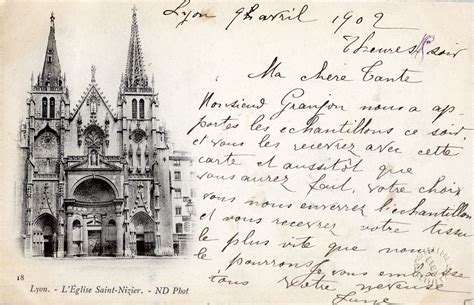 Lyon 9 avril 1902
7 heures soir
Ma chère Tante
Monsieur Granjon nous a ap-
portés les échantillons ce soir
et vous les recevrez avec cette
carte et aussitôt que
vous aurez fait votre choix
vous nous enverrez l'échantillon
et vous recevrez votre tissu
le plus vite que nous
le pourrons. Je vous embrasse
tous Votre
18
Lyon. - L'Église Saint-Nizier. - ND Phot